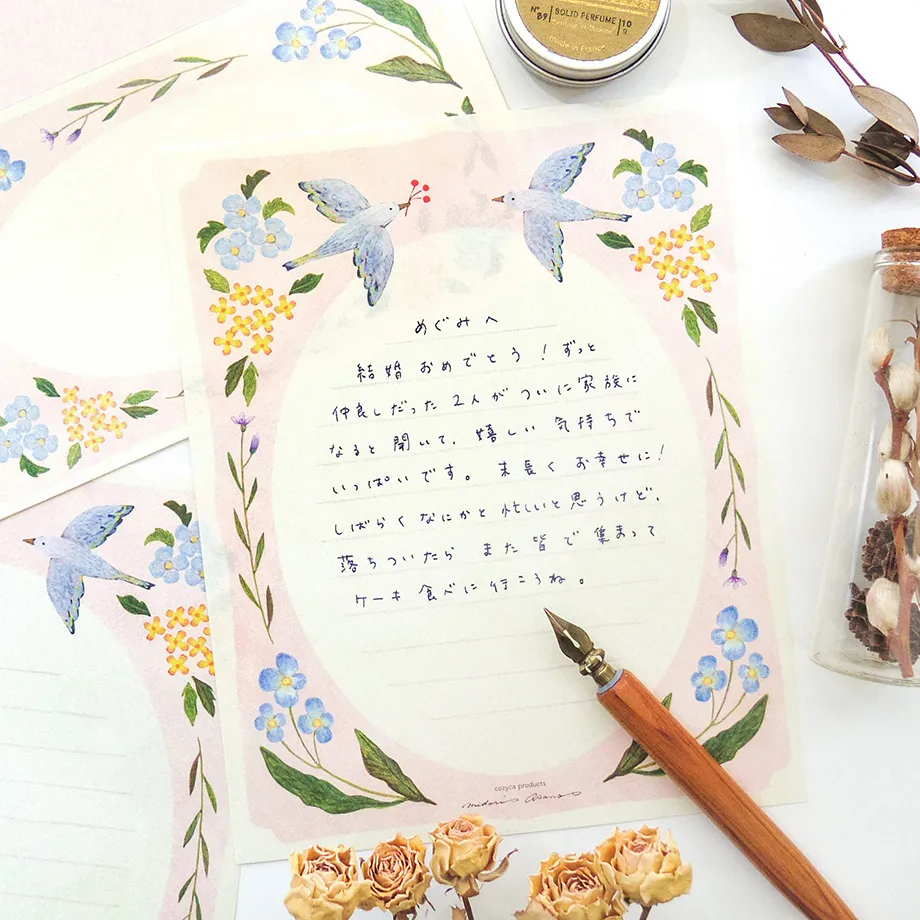 Nº 89
SOLID PERFUME
10 g
made in France
めぐみへ
結婚おめでとう！ずっと
仲良しだった2人がついに家族に
なると聞いて、嬉しい気持ちで
いっぱいです。末長くお幸せに！
しばらくなにかと忙しいと思うけど、
落ちついたらまた皆で集まって
ケーキ食べに行こうね。
cozyca products
midori asano